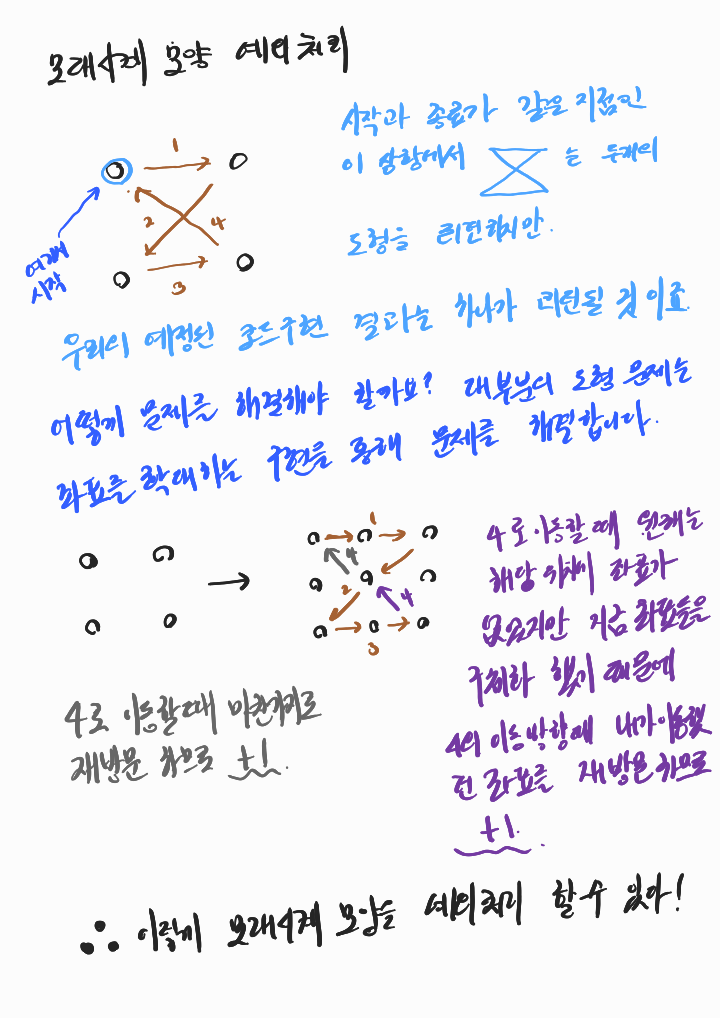 모래시계 모양 예외처리
시작과 종료가 같은 지점인
이 상황에서 는 두개의
도형을 리턴하지만.
1
2
4
3
여기에
시작
우리의 예정된 코드구현 결과는 하나가 리턴될 것이죠.
어떻게 문제를 해결해야 할까요? 대부분의 도형 문제는
좌표를 확대하는 구현을 통해 문제를 해결합니다.
1
4
2
4
3
4로 이동할때 원래는
해당 위치에 좌표가
없었지만 지금 좌표들을
구체화 했기 때문에
4의 이동방향에 내가 이동했
던 좌표를 재방문 하므로
+1.
4로 이동할때 마찬가지로
재방문 하므로 +1.
∴ 이렇게 모래시계 모양을 예외처리 할 수 있다!